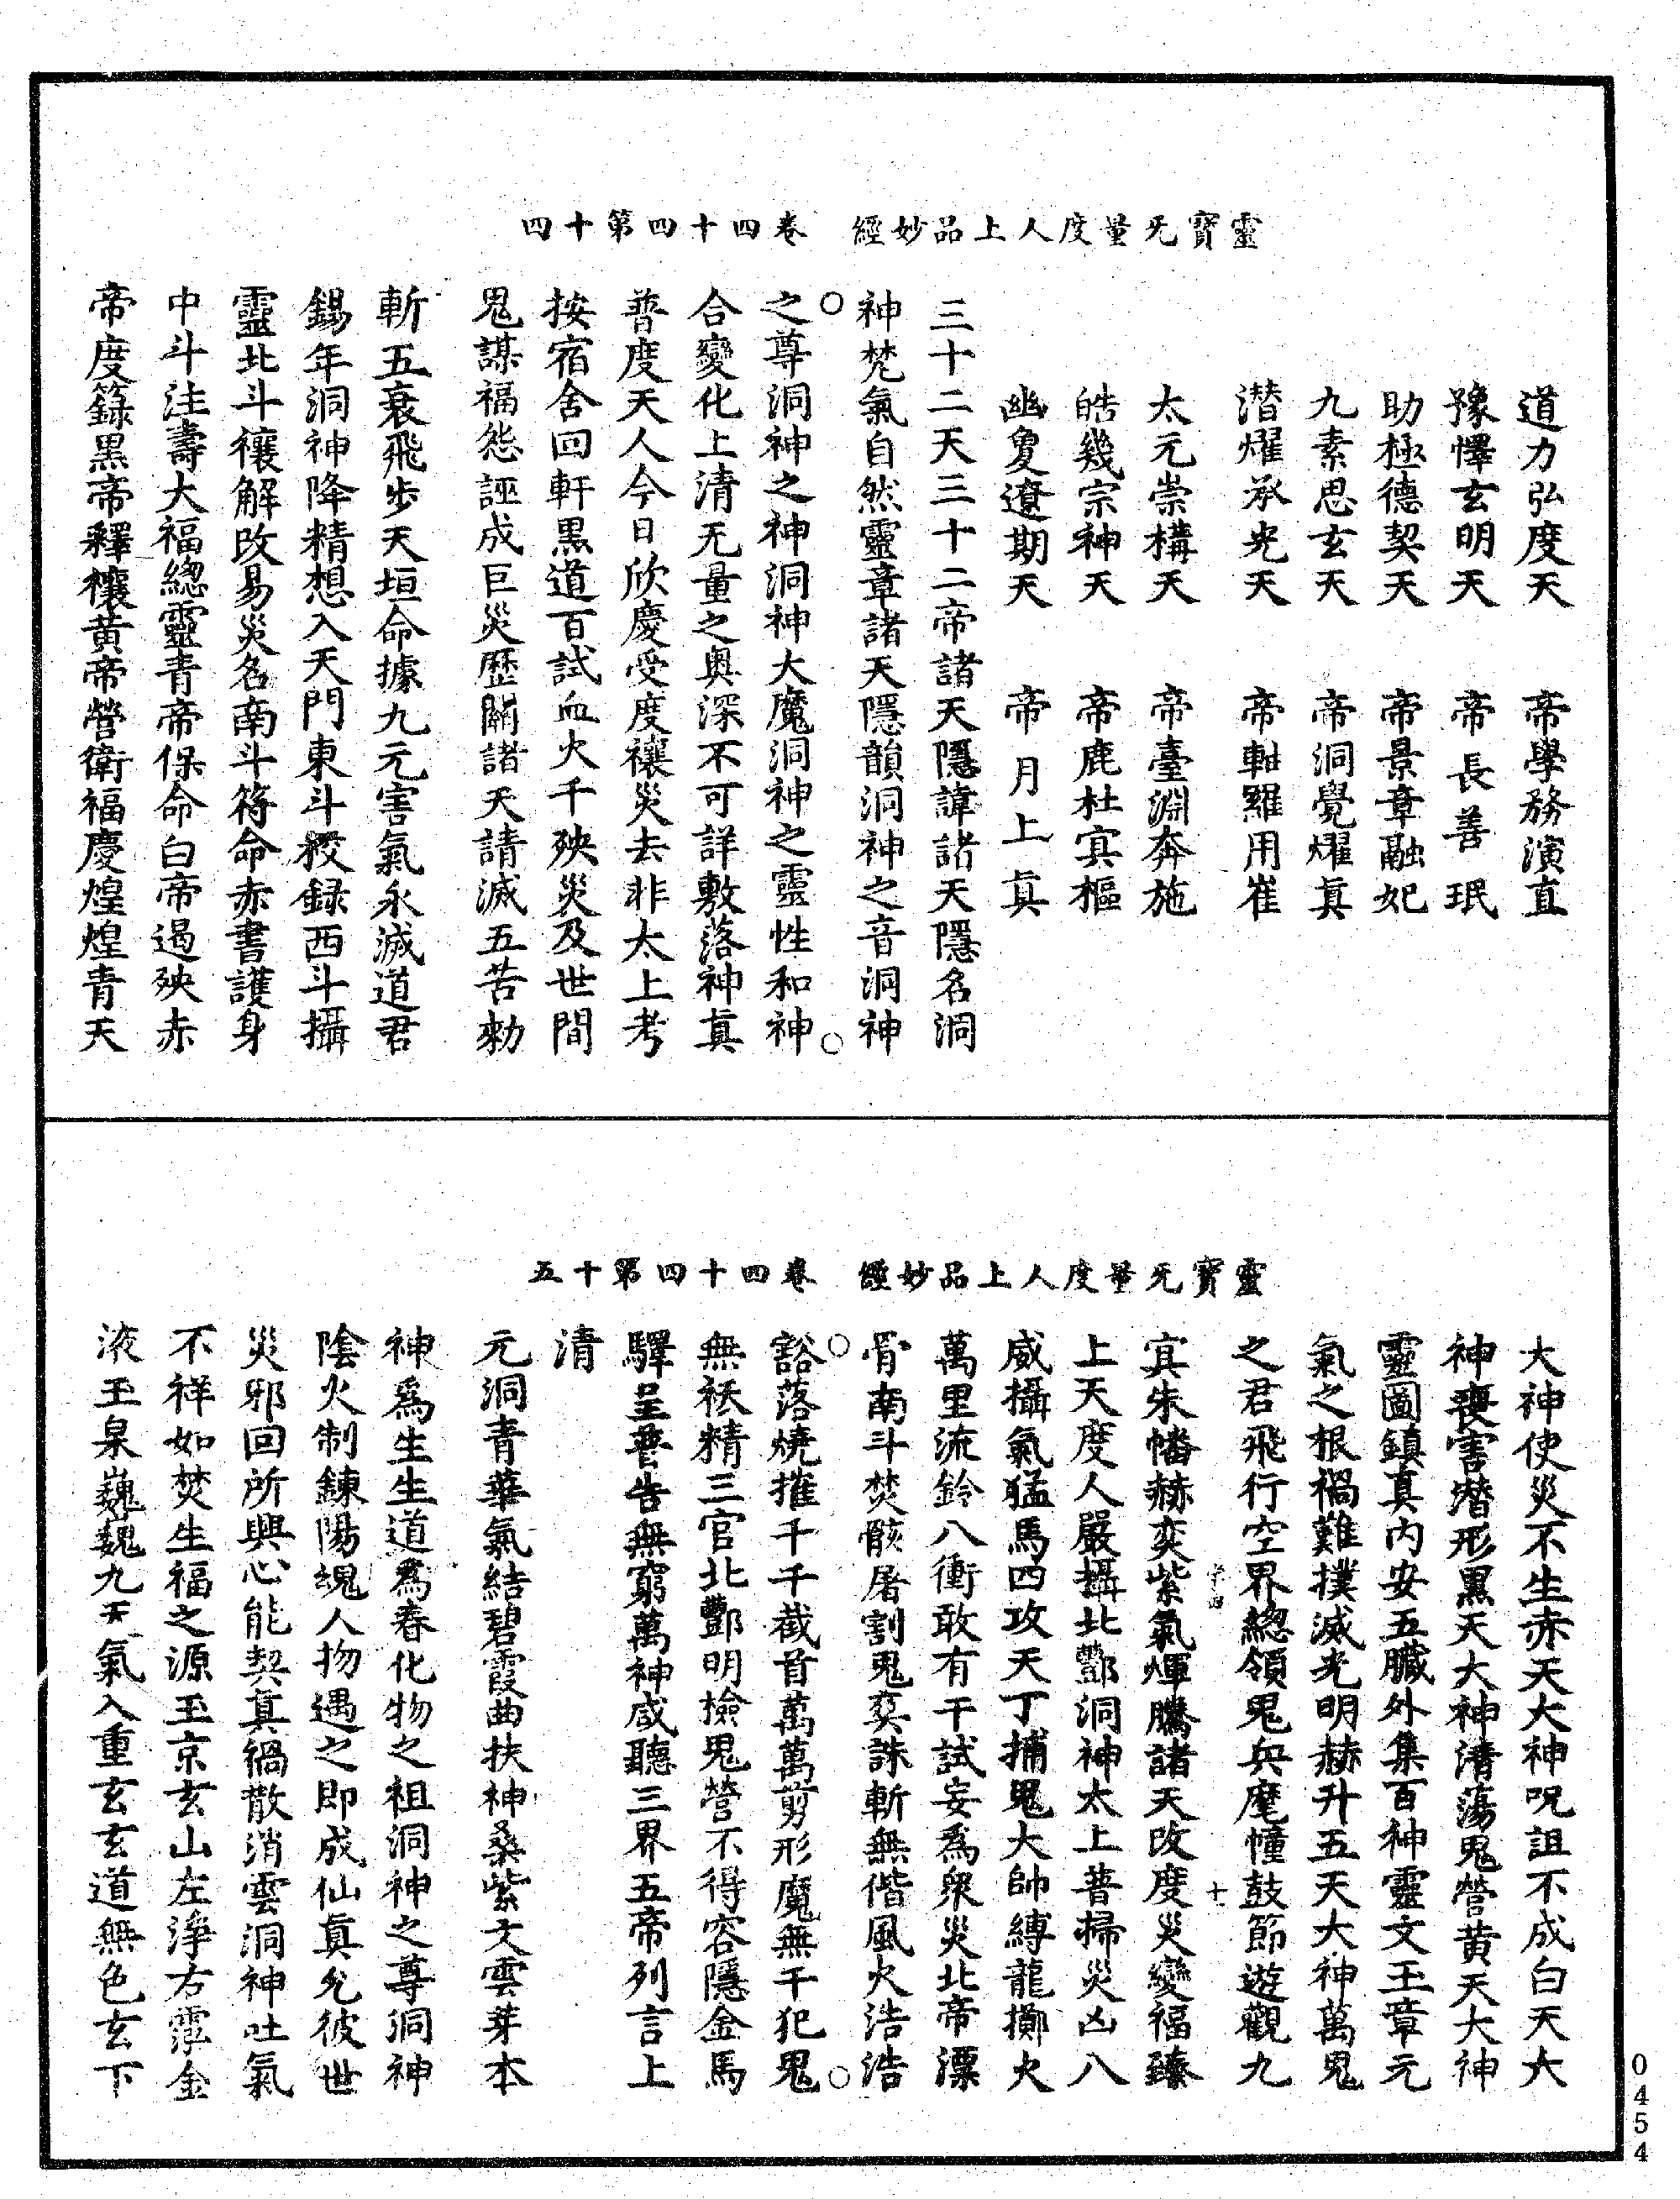 靈寶无量度人上品妙經　卷四十四第十四
道力弘度天　帝學務演直
豫懌玄明天　帝長善珉
助極德契天　帝景章融妃
九素思玄天　帝洞覺燿真
潛燿承光天　帝軸羅用崔
太元崇構天　帝臺淵奔施
皓幾宗神天　帝鹿杜寘樞
幽敻遼期天　帝月上真
三十二天三十二帝諸天隱諱諸天隱名洞
神梵氣自然靈章諸天隱韻洞神之音洞神
之尊洞神之神洞神大魔洞神之靈性和神
合變化上清无量之奧深不可詳敷落神真
普度天人今日欣慶受度禳災去非太上考
按宿舍回軒黑道百試血火千殃災及世間
鬼謀福怨誣成巨災歷關諸天請滅五苦勑
斬五衰飛步天垣命據九元害氣永滅道君
錫年洞神降精想入天門東斗教録西斗攝
靈北斗禳解改易災名南斗符命赤書護身
中斗注壽大福總靈青帝保命白帝遏殃赤
帝度籙黑帝釋禳黃帝營衛福慶煌煌青天
靈寶无量度人上品妙經　卷四十四第十五
大神使災不生赤天大神呪詛不成白天大
神喪害潛形黑天大神清蕩鬼營黃天大神
靈圖鎮真內安五臟外集百神靈文玉章元
氣之根禍難撲滅光明赫升五天大神萬鬼
之君飛行空界總領鬼兵麾幢鼓節遊觀九
字四　十一
寘朱幡赫奕紫氣煇騰諸天改度災變福臻
上天度人嚴攝北酆洞神太上普掃災凶八
威攝氣猛馬四攻天丁捕鬼大帥縛龍擲火
萬里流鈴八衝敢有干試妄為衆災北帝漂
骨南斗焚骸屠割鬼爽誅斬無偕風火浩浩
豁落燒摧千千截首萬萬剪形魔無干犯鬼
無袄精三官北酆明撿鬼營不得容隱金馬
驛呈普告無窮萬神咸聽三界五帝列言上
清
元洞青華氣結碧霞曲扶神桑紫文雲芽本
神為生生道為春化物之祖洞神之尊洞神
陰火制鍊陽魂人物遇之即成仙真允彼世
災邪回所興心能契真禍散消雲洞神吐氣
不祥如焚生福之源玉京玄山左淨右澤金
液玉泉巍巍九天氣入重玄玄道無色玄下
0454